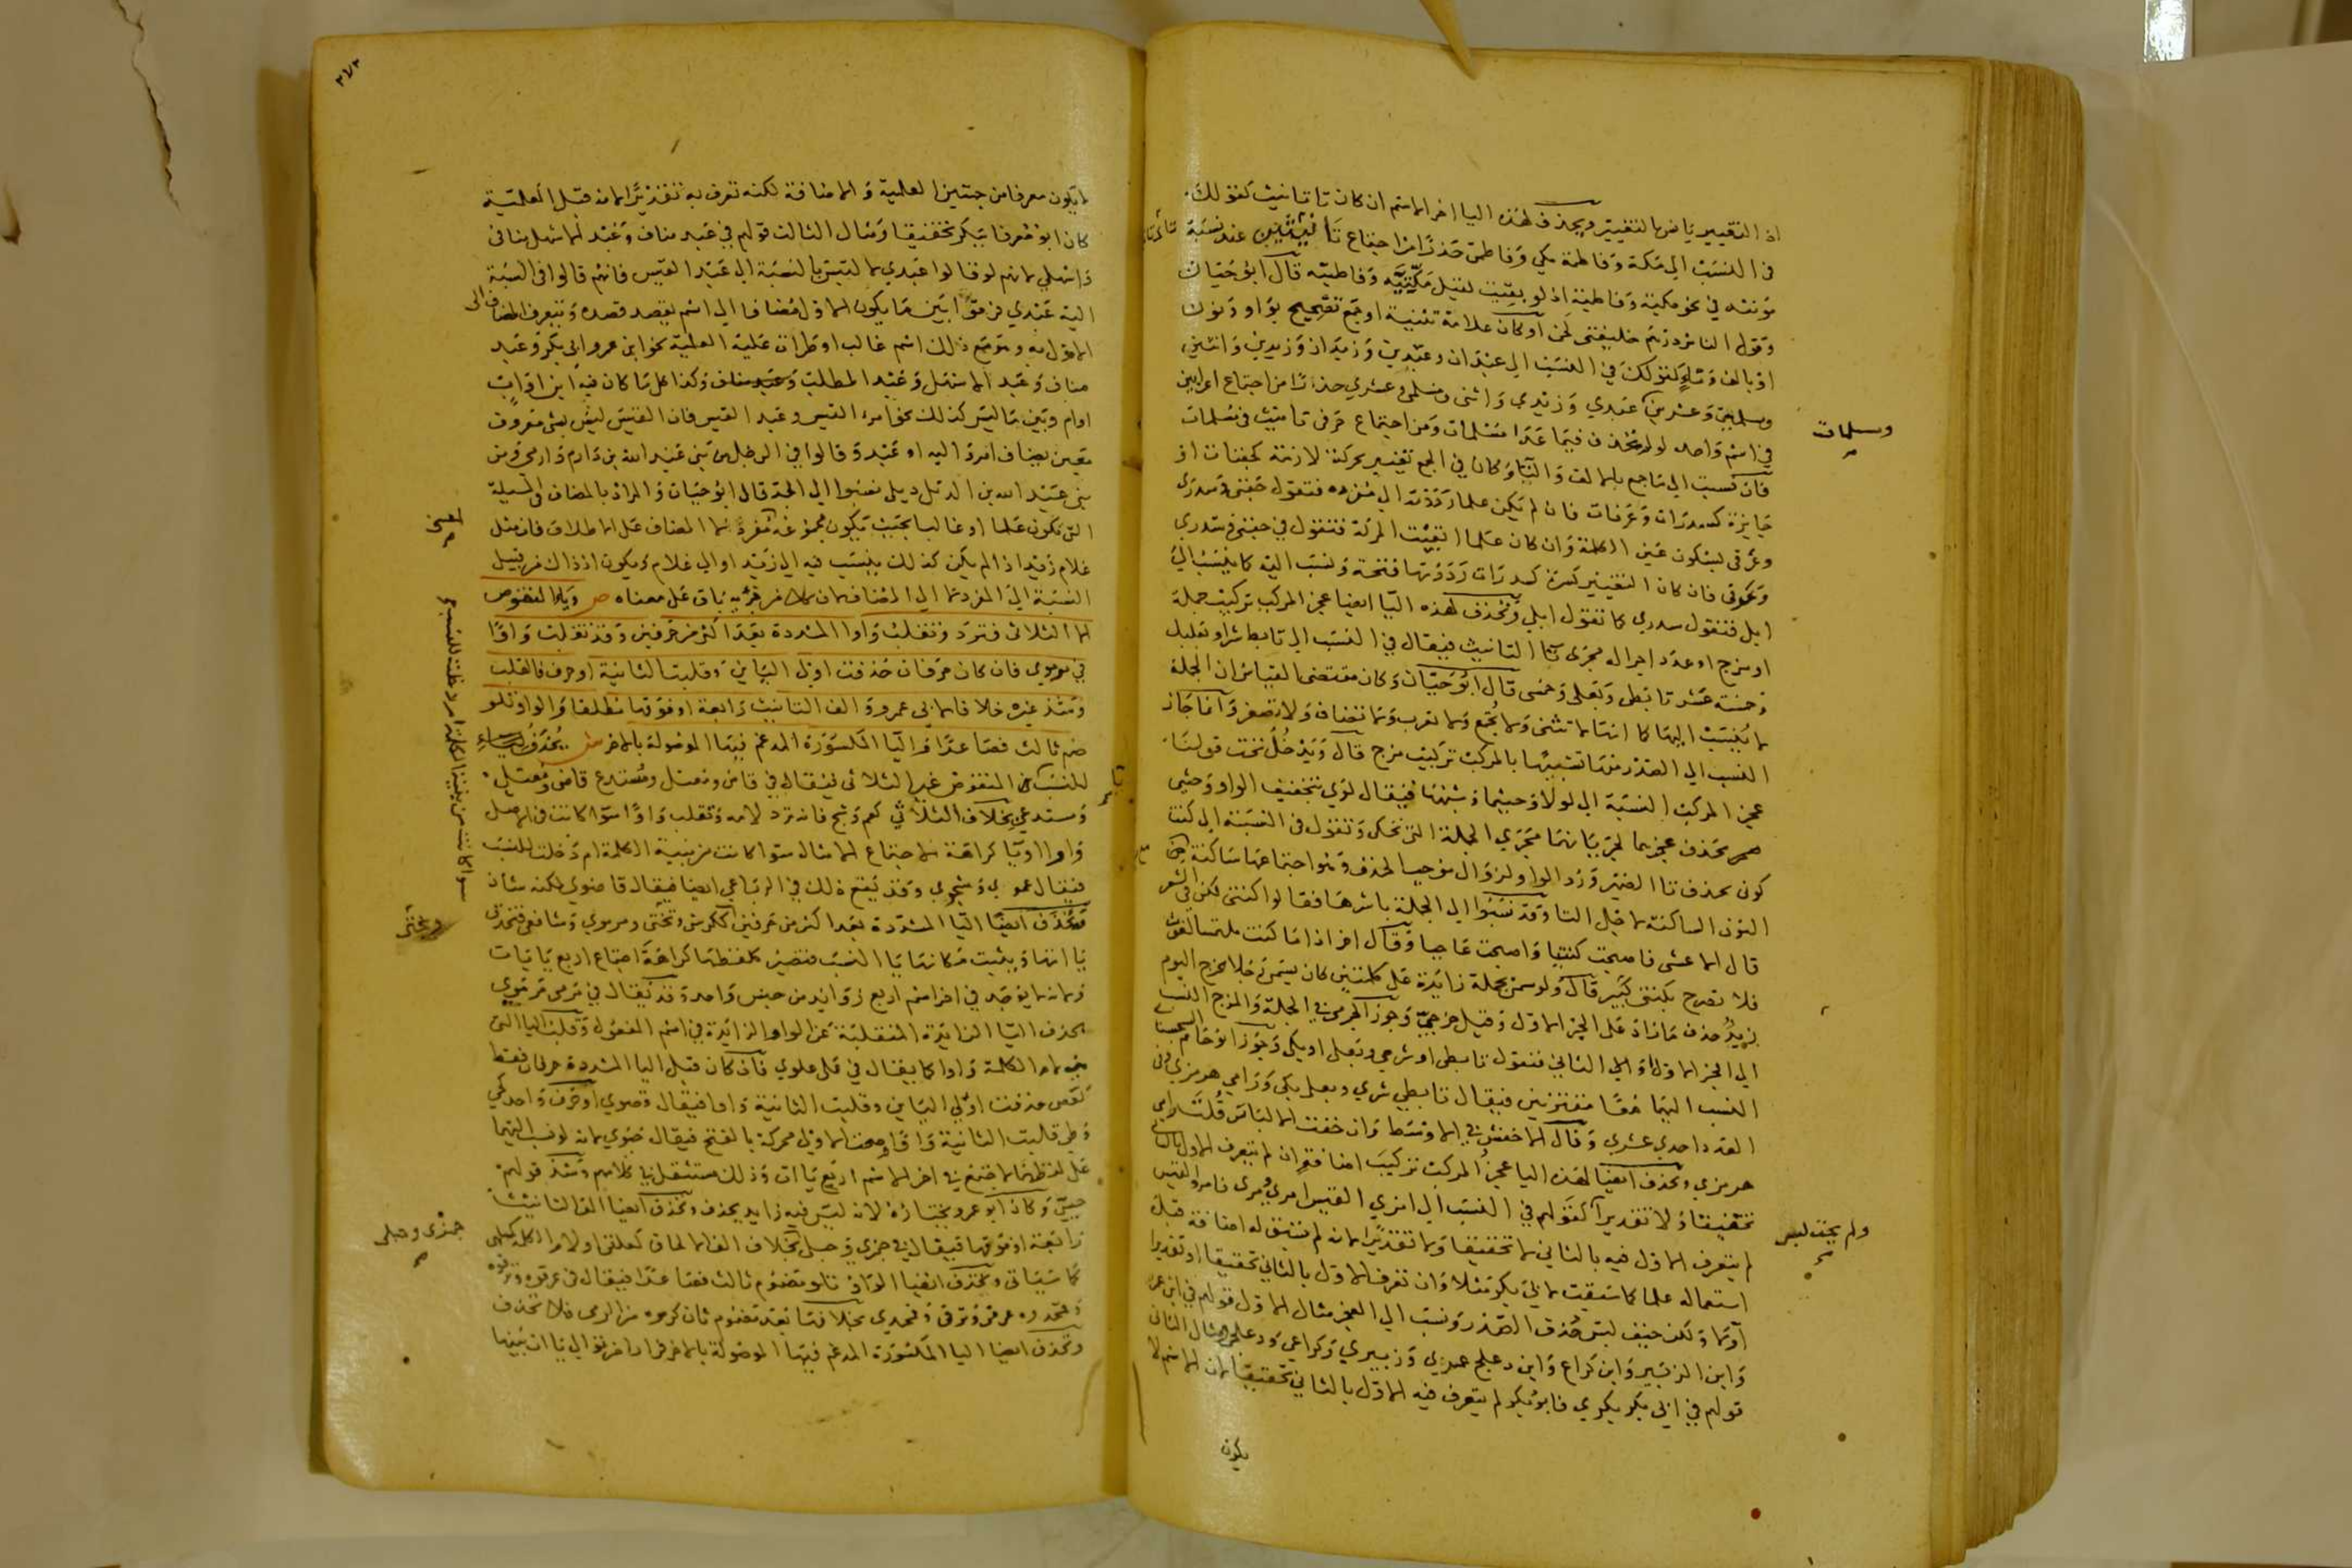 اذ التغيير يانس بالتغيير ويحذف لهذه اليا اخر الاسم ان كان تا تانيث كقولك
في النسب الى مكة وفاطمة مكي وفاطمي حذرا من اجتماع تا تانيثين عند نسبة
مؤنثه في نحو مكية وفاطمية اذ لو بقيت لقيل مكتيه وفاطمتيه قال ابو حيان
وقول الناس درهم خليفتي لحن او كان علامة تثنية او جمع تصحيح بواو ونون
او بالف وتاء كقولك في النسب الى عبدان وعبدين وزيدان وزيدين واثنين
ومسلمين وعشرين عبدي وزيدي واثني ومسلمي وعشري حذرا من اجتماع اعرابين
وسلمات
في اسم واحد لو لم تحذف فيما عدا مسلمات ومن اجتماع حرفي تانيث في مسلمات
فان نسبت الى ما جمع بالالف والتا وكان في الجمع تغيير بحركة لازمة كجفنات او
جايزة كسدرات وغرفات فان لم يكن علما رددته الى مفرده فتقول جفني وسدري
وغرفي بسكون عين الكلمة وان كان علما ابقيت الحركة فتقول في جفني وسدري
وغرفي فان كان التغيير كسرة كسدرات رددتها فتحة ونسب اليه كما ينسب الى
ابل فتقول سدري كما تقول ابلي وتحذف لهذه اليا ايضا عجز المركب تركيب جملة
او مزج او عدد اجراله مجرى تا التانيث فيقال في النسب الى تابط شرا وبعلبك
وخمسة عشر تابطي وبعلي وخمسي قال ابو حيان وكان مقتضى القياس ان الجملة
لا ينسب اليها كما انها لا تثنى ولا تجمع ولا تعرب ولا تضاف ولا تصغر وانما جاز
النسب الى الصدر منها تشبيها بالمركب تركيب مزج قال ويدخل تحت قولنا
عجز المركب النسبة الى لولا وحيثما وشبهها فيقال لوي بتخفيف الواو وحيثي
بحذف عجزهما لجريانهما مجرى الجملة التي تحكى وتقول في النسبة الى كنت
كوني بحذف تا الضمير ورد الواو لزوال موجب الحذف وهو اجتماعها ساكنة مع
النون الساكنة لاجل التا وقد نسبوا الى الجملة باسرها فقالوا كنتي لكن في الشعر
قال الاعشى فاصبحت كنتيا واصبحت عاجنا وقال اخر اذا ما كنت ملتمسا لغوث
فلا تصرخ بكنتي كبير قال ولو سمي بجملة زايدة على كلمتين كان يسمى رجلا بخرج اليوم
زيد حذف ما زاد على الجز الاول وقيل خرجي وجوز الجرمي في الجملة والمزج النسب
الى الجز الاول او الى الثاني فتقول تابطي او شرعي وبعلي او بكي وجوز ابو حاتم السجستاني
النسب اليهما معا مقترنين فيقال تابطي شري وبعلي بكي ورامي هرمزي وفي
العدد احدي عشري وقال الاخفش في الاوسط وان خفت الالتباس قلت رامي
هرمزي وتحذف ايضا لهذه اليا عجز المركب تركيب اضافة ان لم يتعرف الاول بالثاني
تحقيقا ولا تقديرا كقولهم في النسب الى امري القيس امري ومرى فامرؤ القيس
ولم يخف لبس
لم يتعرف الاول فيه بالثاني لا تحقيقا ولا تقديرا لانه لم يسبق له اضافة قبل
استعماله علما كما سبقت لابي بكر مثلا وان تعرف الاول بالثاني تحقيقا او تقديرا
او لا ولكن خيف لبس حذف الصدر ونسب الى العجز مثال الاول قولهم في ابن عمر
وابن الزبير وابن كراع وابن دعلج عمري وزبيري وكراعي ودعلجي ومثال الثاني
قولهم في ابي بكر بكري فابو بكر لم يتعرف فيه الاول بالثاني تحقيقا لان الاسم لا
يكون
٢٧٢
لا يكون معرفا من جهتين العلمية والاضافة لكنه تعرف به تقديرا لانه قبل العلمية
كان ابو معرفا ببكر تحقيقا ومثال الثالث قولهم في عبد مناف وعبد الاشهل منافي
واشهلي لانهم لو قالوا عبدي لالتبس بالنسبة الى عبد القيس فانهم قالوا في النسبة
اليه عبدي فرقوا بين ما يكون الاول مضافا الى اسم يقصد قصده ويتعرف المضاف الى
الاول به وهو مع ذلك اسم غالب او طرات عليه العلمية نحو ابن عمر وابي بكر وعبد
مناف وعبد الاشهل وعبد المطلب وعبد مناف وكذا كل ما كان فيه ابن او اب
او ام وبين ما ليس كذلك نحو امرء القيس وعبد القيس فان القيس ليس بشي معروف
معين يضاف امرؤ اليه او عبد وقالوا في الرجل من بني عبد الله بن دارم دارمي ومن
بني عبد الله بن الدئل دئلي نسبوا الى الجد قال ابو حيان والمراد بالمضاف في المسئلة
التي تكون علما او غالبا بحيث يكون مجموعه مفردا لا المضاف على الاطلاق فان مثل
غلام زيد اذا لم يكن كذلك ينسب فيه الى زيد او الى غلام ويكون اذ ذاك من قبيل
النسبة الى المفرد لا الى المضاف لان كلا من جزئيه باق على معناه ص ويا المنقوص
لا الثلاثي فترد وتقلب واوا المشددة بعد اكثر من حرفين وقد تقلب واوا
في مرموي فان كان حرفان حذفت اولى اليائين وقلبت الثانية او حرف فالقلب
وشذ غيره خلافا لابي عمرو والف التانيث رابعة او فوقها مطلقا والواو تلو
ضم ثالث فصاعدا واليا المكسورة المدغم فيها الموصولة بالاخر ش يحذف
للنسب يا المنقوص غير الثلاثي فيقال في قاض ومعتل ومستدع قاضي ومعتلي
ومستدعي بخلاف الثلاثي كعم وشج فانه ترد لامه وتقلب واوا سوا كانت في الاصل
واوا او يا كراهة لاجتماع الامثال سوا كانت من بنية الكلمة ام دخلت للنسب
فيقال عموي وشجوي وقد يقع ذلك في الرباعي ايضا فيقال قاضوي لكنه شاذ
وتحذف ايضا اليا المشددة بعد اكثر من حرفين ككرسي وبختي ومرموي وشافعي فتحذف
يا اتها ويثبت مكانها يا النسب فتصير كلفظها كراهة اجتماع اربع ياات
ولانه لا يوجد في اخر اسم اربع زوايد من جنس واحد وقد يقال في مرمي مرموي
بحذف اليا الزايدة المنقلبة عن الواو الزايدة في اسم المفعول وقلب اليا التي
هي لام الكلمة واوا كما يقال في علي علوي فان كان قبل اليا المشددة حرفان فقط
كقصي حذفت اولى اليائين وقلبت الثانية واوا فيقال قصوي او حرف واحد كحي
وطي قلبت الثانية واوا وصحت الاولى محركة بالفتح فيقال حيوي لانه لو نسب اليهما
على لفظهما لاجتمع في اخر الاسم اربع ياات وذلك مستثقل في كلامهم وشذ قولهم
حيي وكان ابو عمرو يختاره لانه ليس فيه زايد يحذف وتحذف ايضا الف التانيث
رابعة او فوقها فيقال في جمزى وحبلى بخلاف الف الالحاق كعلقى ولام الكلمة كملهى
جمزي وحبلي
كما سياتي وتحذف ايضا الواو تلو مضموم ثالث فصاعدا فيقال في عرقوة وترقوة
وقمحدوة عرقي وترقي وقمحدي بخلافها بعد مضموم ثان كرموه من الرمي فلا تحذف
وتحذف ايضا اليا المكسورة المدغم فيها الموصولة بالاخر فرارا من توالي ياات بينها
سوا كانت من بنية الكلمة ام دخلت للنسب